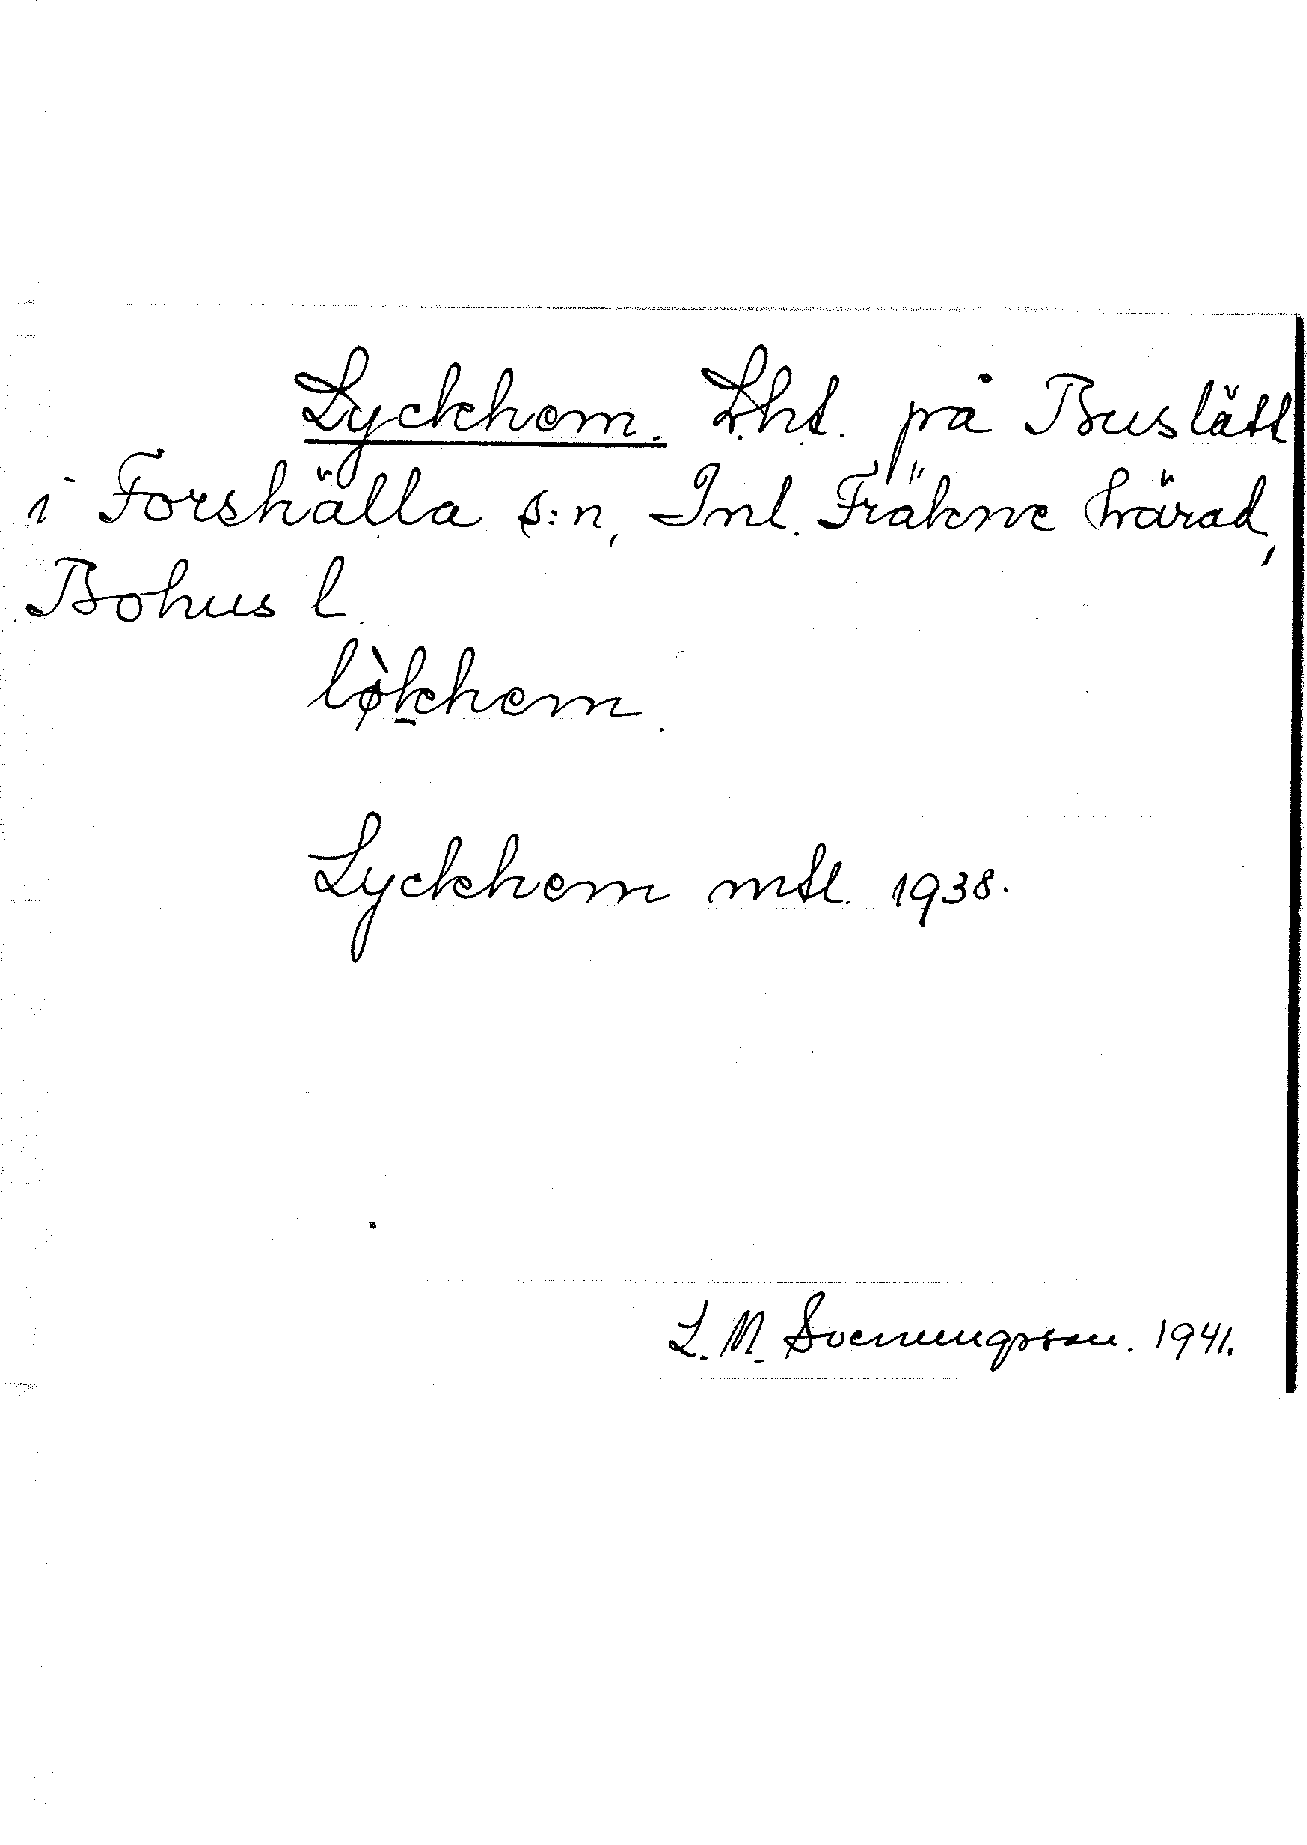 Lyckhem. Lht. på Buslätt
i Forshälla s:n, Inl. Fräkne härad,
Bohus l.
lø̀khem.
Lyckhem mtl. 1938.
L. M. Svenungsson. 1941.